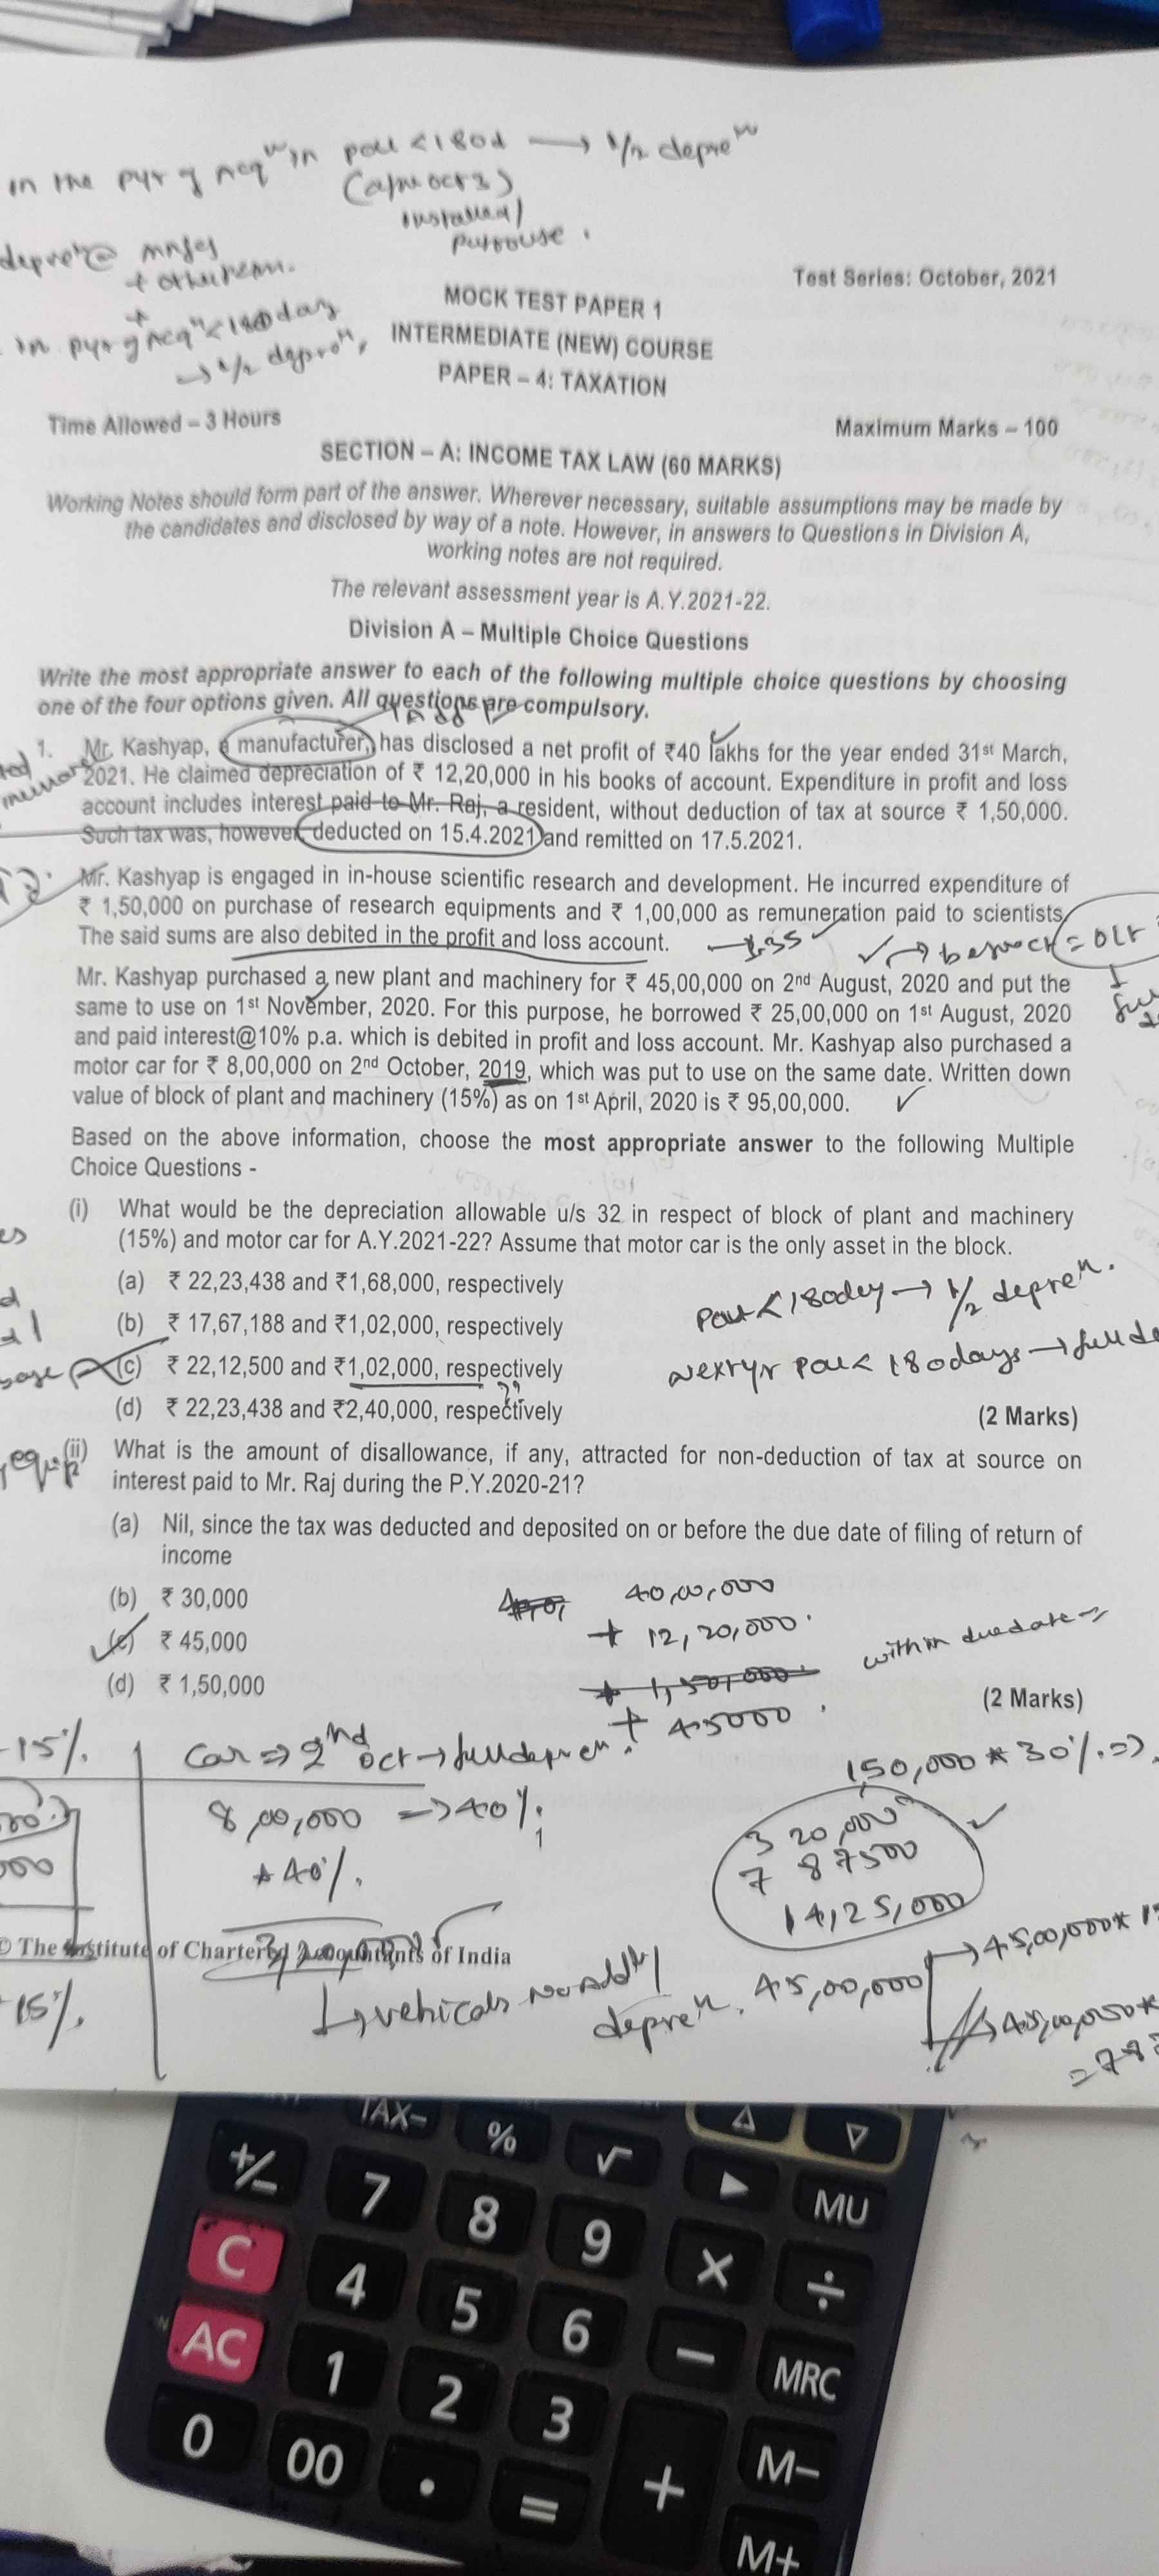 in the pyr of acqn in pou <180d → 1/2 depren
(after oct 3)
installed/
put to use.
depren @ mnfg
+ other
+
in pyr of acqn <180 day
→ 1/2 depren,
Test Series: October, 2021
MOCK TEST PAPER 1
INTERMEDIATE (NEW) COURSE
PAPER – 4: TAXATION
Time Allowed – 3 Hours
Maximum Marks – 100
SECTION – A: INCOME TAX LAW (60 MARKS)
Working Notes should form part of the answer. Wherever necessary, suitable assumptions may be made by
the candidates and disclosed by way of a note. However, in answers to Questions in Division A,
working notes are not required.
The relevant assessment year is A.Y.2021-22.
Division A – Multiple Choice Questions
Write the most appropriate answer to each of the following multiple choice questions by choosing
one of the four options given. All questions are compulsory.
1. Mr. Kashyap, a manufacturer, has disclosed a net profit of ₹40 lakhs for the year ended 31st March,
2021. He claimed depreciation of ₹ 12,20,000 in his books of account. Expenditure in profit and loss
account includes interest paid to Mr. Raj, a resident, without deduction of tax at source ₹ 1,50,000.
Such tax was, however deducted on 15.4.2021 and remitted on 17.5.2021.
Mr. Kashyap is engaged in in-house scientific research and development. He incurred expenditure of
₹ 1,50,000 on purchase of research equipments and ₹ 1,00,000 as remuneration paid to scientists
The said sums are also debited in the profit and loss account.
→ 35
Mr. Kashyap purchased a new plant and machinery for ₹ 45,00,000 on 2nd August, 2020 and put the
same to use on 1st November, 2020. For this purpose, he borrowed ₹ 25,00,000 on 1st August, 2020
and paid interest@10% p.a. which is debited in profit and loss account. Mr. Kashyap also purchased a
motor car for ₹ 8,00,000 on 2nd October, 2019, which was put to use on the same date. Written down
value of block of plant and machinery (15%) as on 1st April, 2020 is ₹ 95,00,000.
Based on the above information, choose the most appropriate answer to the following Multiple
Choice Questions -
(i) What would be the depreciation allowable u/s 32 in respect of block of plant and machinery
(15%) and motor car for A.Y.2021-22? Assume that motor car is the only asset in the block.
(a) ₹ 22,23,438 and ₹1,68,000, respectively
(b) ₹ 17,67,188 and ₹1,02,000, respectively
(c) ₹ 22,12,500 and ₹1,02,000, respectively
??
(d) ₹ 22,23,438 and ₹2,40,000, respectively
Pou < 180day → 1/2 depren.
next yr pou < 180days → full de
(2 Marks)
(ii) What is the amount of disallowance, if any, attracted for non-deduction of tax at source on
interest paid to Mr. Raj during the P.Y.2020-21?
(a) Nil, since the tax was deducted and deposited on or before the due date of filing of return of
income
(b) ₹ 30,000
(c) ₹ 45,000
(d) ₹ 1,50,000
40,00,000
+ 12,20,000.
+ 1,50,000.
+ 45000.
within due date
(2 Marks)
15%.
car ⇒ 2nd oct → full depren.
150,000 * 30%. ⇒
8,00,000 ⇒ 40%.
* 40%.
3,20,000
3 20,000
7 87500
14,25,000
© The Institute of Chartered Accountants of India
15%.
↳ vehicals no addl
depren.
45,00,000
→ 45,00,000*
→ 45,00,000*
= 787
TAX-
%
√
△
▽
+/-
7
8
9
▶
MU
C
4
5
6
×
÷
AC
1
2
3
−
MRC
0
00
·
=
+
M−
M+